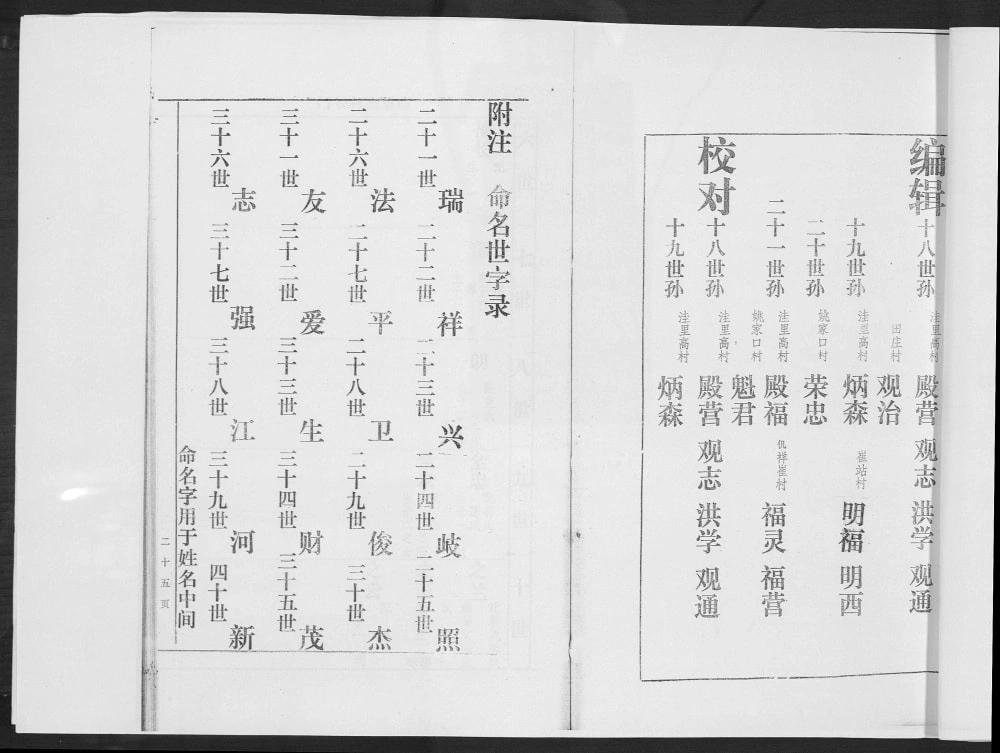 编辑
十八世孙 洼里高村 殿营 观志 洪学 观通
田庄村 观治
十九世孙 洼里高村 炳森 崔站村 明福 明西
二十世孙 姚家口村 荣忠
二十一世孙 洼里高村 殿福 仉祥崔村 福灵 福营
姚家口村 魁君
校对
十八世孙 洼里高村 殿营 观志 洪学 观通
十九世孙 洼里高村 炳森
附注 命名世字录
二十一世 瑞 二十二世 祥 二十三世 兴 二十四世 岐 二十五世 照
二十六世 法 二十七世 平 二十八世 卫 二十九世 俊 三十世 杰
三十一世 友 三十二世 爱 三十三世 生 三十四世 财 三十五世 茂
三十六世 志 三十七世 强 三十八世 江 三十九世 河 四十世 新
命名字用于姓名中间
二十五页